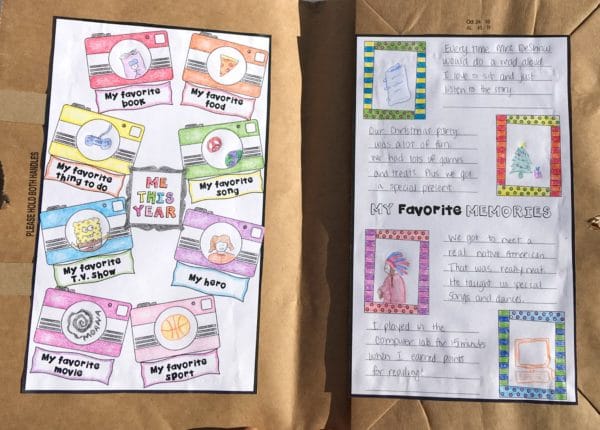 PLEASE HOLD BOTH HANDLES
My favorite
book
My favorite
food
My favorite
thing to do
My favorite
song
ME
THIS
YEAR
My favorite
T.V. show
My hero
MOANA
My favorite
movie
My favorite
sport
Oct 24
Every time Mrs. DeShaw
would do a read aloud
I love to sit and just
listen to the story.
Our Christmas party
was alot of fun.
We had lots of games
and treats. Plus we got
a special present.
MY Favorite MEMORIES
We got to meet a
real native American.
That was really neat.
He taught us special
songs and dances.
I played in the
computer lab for 15 minutes
when I earned points
for reading!